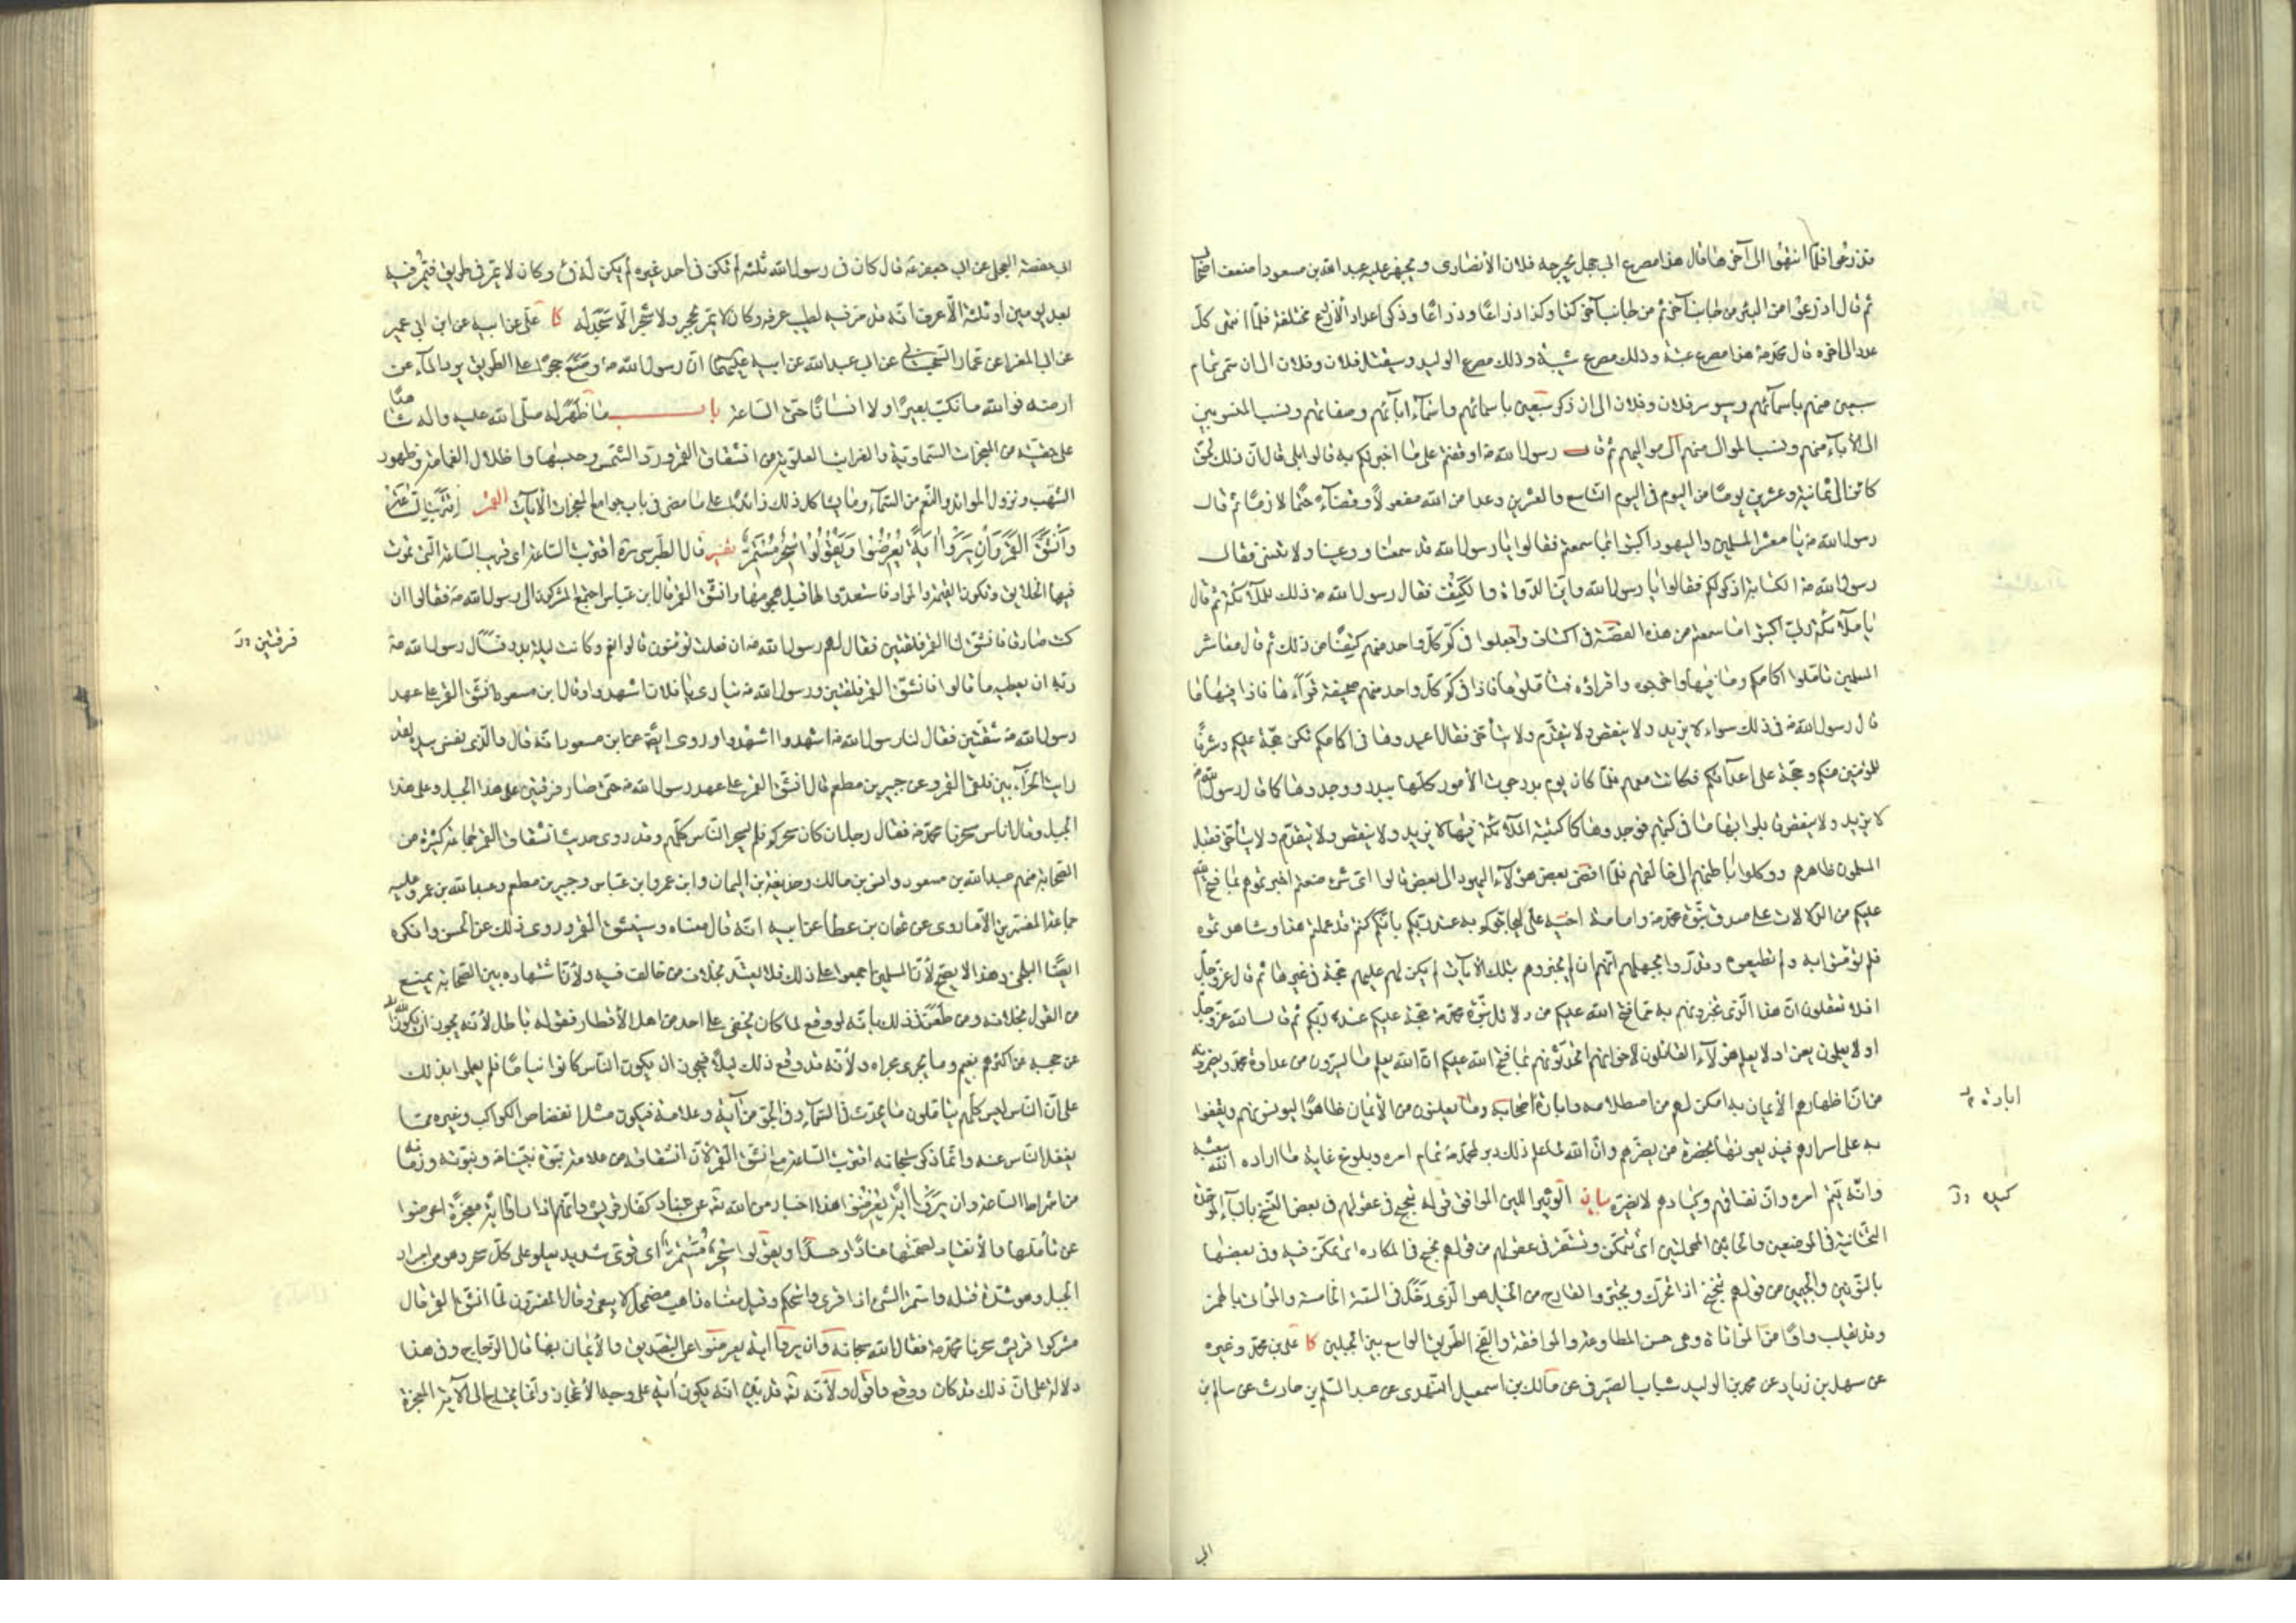 قد ذرعوا فلما انتهوا الى آخرها قال هذا مصرع ابى جهل يجرحه فلان الأنصارى و يجهز عليه عبد الله بن مسعود اضعف اصحابى
ثم قال اذرعوا من البئر من جانب آخر ثم من جانب آخر كذا و كذا ذراعا و ذراعا و ذكر اعداد الأذرع مختلفة فلما انتهى كل
عدد الى آخره قال محمد ص هذا مصرع عتبة و ذلك مصرع شيبة و ذلك مصرع الوليد و سيقتل فلان و فلان الى ان سمى تمام
سبعين منهم بأسمائهم و سيوسر فلان و فلان الى ان ذكر سبعين باسمائهم و اسماء ابائهم و صفاتهم و نسب المنسوبين
الى الأباء منهم و نسب الموالى منهم الى مواليهم ثم قال رسول الله ص اوقفتم على ما اخبرتكم به قالوا بلى قال ان ذلك لحق
كائن الى ثمانية و عشرين يوما من اليوم فى اليوم التاسع و العشرين وعدا من الله مفعولا و قضاء حتما لازما ثم قال
رسول الله ص يا معشر المسلمين و اليهود اكتبوا بما سمعتم فقالوا يا رسول الله قد سمعنا و وعينا و لا ننسى فقال
رسول الله ص الكتابة اذكر لكم فقالوا يا رسول الله و اين الدواة و الكتف فقال رسول الله ص ذلك للملائكة ثم قال
يا ملائكة ربى اكتبوا ما سمعتم من هذه القصة فى اكتاف و اجعلوا فى كم كل واحد منهم كتفا من ذلك ثم قال معاشر
المسلمين تاملوا اكمامكم و ما فيها و اخرجوه و اقرأوه فتاملوها فاذا فى كم كل واحد منهم صحيفة قرأها فاذا فيها ما
قال رسول الله ص فى ذلك سواء لا يزيد و لا ينقص و لا يتقدم و لا يتأخر فقال اعيدوها فى اكمامكم تكن حجة عليكم و شرفا
للمؤمنين منكم و حجة على اعدائكم فكانت معهم فلما كان يوم بدر جرت الأمور كلها ببدر و وجدوها كما قال رسول الله ص
لا يزيد و لا ينقص قابلوا بها ما فى كتبهم فوجدوها كما كتبته الملائكة فيها لا يزيد و لا ينقص و لا يتقدم و لا يتأخر فقبل
المسلمون ظاهرهم و وكلوا باطنهم الى خالقهم فلما افضى بعض هؤلاء اليهود الى بعض قالوا اى شىء صنعتم اخبرتموهم بما فتح الله
عليكم من الدلالات على صدق نبوة محمد ص و امامة اخيه على ليحاجوكم به عند ربكم بانكم كنتم قد علمتم هذا و شاهدتموه
فلم تؤمنوا به و لم تطيعوه و قدروا بجهلهم انهم ان لم يخبروهم بتلك الآيات لم يكن لهم عليهم حجة فى غيرها ثم قال عز و جل
افلا تعقلون ان هذا الذى تخبرونهم به مما فتح الله عليكم من دلائل نبوة محمد ص حجة عليكم عند ربكم ثم قال الله عز و جل
او لا يعلمون يعنى او لا يعلم هؤلاء القائلون لاخوانهم اتحدثونهم بما فتح الله عليكم ان الله يعلم ما يسرون من عداوة محمد و يضمرونه
من ان اظهارهم الأيمان به امكن لهم من اصطلامه و ابارة اصحابه و ما يعلنون من الأيمان ظاهرا ليونسوهم و يقفوا
به على اسرارهم فيذيعونها بحضرة من يضرهم و ان الله لما علم ذلك دبر لمحمد ص تمام امره و بلوغ غاية ما اراده الله ببعثه
و انه يتم امره و ان نفاقهم و كيادهم لا يضره بيان الوثير اللين الموافق قوله تنجح فى عقولهم فى بعض النسخ بالباء الموحدة
التحتانية فى الموضعين و الحائين المهملتين اى تتمكن و تستقر فى عقولهم من قولهم بحبح فى المكان اى تمكن فيه و فى بعضها
بالنونين و الجيمين من قولهم تنجنج اذا تحرك و تجبر و القارح من الخيل هو الذى دخل فى السنة الخامسة و المؤاتاة بالهمز
و قد يقلب واوا من المواتاة و هى حسن المطاوعة و الموافقة و الفج الطريق الواسع بين الجبلين كا على بن محمد و غيره
عن سهل بن زياد عن محمد بن الوليد شباب الصيرفى عن مالك بن اسمعيل النهدى عن عبد السلم بن حارث عن سالم بن
ابادة
كيده
ابى
ابى حفصة العجلى عن ابى جعفر ع قال كان فى رسول الله ثلثة لم تكن فى احد غيره لم يكن له فىء و كان لا يمر فى طريق فيمر فيه
بعد يومين او ثلثة الا عرف انه قد مر فيه لطيب عرفه و كان لا يمر بحجر و لا شجر الا سجد له كا على عن ابيه عن ابن ابى عمير
عن ابى المغرا عن عمار السجستانى عن ابى عبد الله عن ابيه عليهما ان رسول الله ص وضع حجرا على الطريق يرد الماء عن
ارضه فوالله ما نكب بعيرا و لا انسانا حتى الساعة باب ما ظهر له صلى الله عليه و اله شاهدا
على حقيته من المعجزات السماوية و الغرايب العلوية من انشقاق القمر و رد الشمس و حبسها و اظلال الغمامة و ظهور
الشهب و نزول الموائد و النعم من السماء و ما يشاكل ذلك زائدا على ما مضى فى باب جوامع المعجزات الآيات القمر اقتربت الساعة
و انشق القمر و ان يروا اية يعرضوا و يقولوا سحر مستمر تفسير قال الطبرسى ره اقتربت الساعة اى قربت الساعة التى تموت
فيها الخلائق و تكون القيمة و المراد فاستعدوا لها قبل هجومها و انشق القمر قال ابن عباس اجتمع المشركون الى رسول الله ص فقالوا ان
كنت صادقا فانشق لنا القمر فلقتين فقال لهم رسول الله ص ان فعلت تؤمنون قالوا نعم و كانت ليلة بدر فسأل رسول الله ص
ربه ان يعطيه ما قالوا فانشق القمر فلقتين و رسول الله ص ينادى يا فلان يا فلان اشهدوا و قال ابن مسعود انشق القمر على عهد
رسول الله ص شقتين فقال لنا رسول الله ص اشهدوا اشهدوا و روى ايضا عن ابن مسعود انه قال و الذى نفسى بيده لقد
رايت الحراء بين فلقى القمر و عن جبير بن مطعم قال انشق القمر على عهد رسول الله ص حتى صار فرقتين على هذا الجبل و على هذا
الجبل و قال اناس سحرنا محمد ص فقال رجل ان كان سحركم فلم يسحر الناس كلهم و قد روى حديث انشقاق القمر جماعة كثيرة من
الصحابة منهم عبد الله بن مسعود و انس بن مالك و حذيفة بن اليمان و ابن عمر و ابن عباس و جبير بن مطعم و عبد الله بن عمر و عليه
جماعة المفسرين الا ما روى عن عثمان بن عطا عن ابيه انه قال معناه و سينشق القمر و روى ذلك عن الحسن و انكره
ايضا البلخى و هذا لا يصح لأن المسلمين اجمعوا على ذلك فلا يعتد بخلاف من خالف فيه و لأن اشتهاره بين الصحابة يمنع
من القول بخلافه و من طعن فى ذلك بانه لو وقع لما كان يخفى على احد من اهل الأقطار فقوله باطل لأنه يجوز ان يكون الله
قد حجبه عن اكثرهم بغيم و ما يجرى مجراه و لأنه قد وقع ذلك ليلا فيجوز ان يكون الناس كانوا نياما فلم يعلموا بذلك
على ان الناس ليس كلهم يتاملون ما يحدث فى السماء و فى الجو من آية و علامة فيكون مثل انقضاض الكواكب و غيره مما
يغفل الناس عنه و انما ذكر سبحانه اقتراب الساعة مع انشقاق القمر لأن انشقاقه من علامة نبوة نبينا ص و نبوته و زمانه
من اشراط الساعة و ان يروا اية يعرضوا هذا اخبار من الله تع عن عناد كفار قريش و انهم اذا راوا اية معجزة اعرضوا
عن تأملها و الأنقياد لصحتها عنادا و حسدا و يقولوا سحر مستمر اى قوى شديد يعلو على كل سحر و هو من امرار
الحبل و هو شدة فتله و استمر الشىء اذا قوى و استحكم و قيل معناه ذاهب مضمحل لا يبقى و قال المفسرون لما انشق القمر قال
مشركوا قريش سحرنا محمد ص فقال الله سبحانه و ان يروا آية يعرضوا عن التصديق و الأيمان بها قال الزجاج و فى هذا
دلالة على ان ذلك قد كان و وقع و اقول و لأنه تع قد بين انه يكون آية على وجه الأعجاز و انما يحتاج الى الآية المعجزة
فرقتين